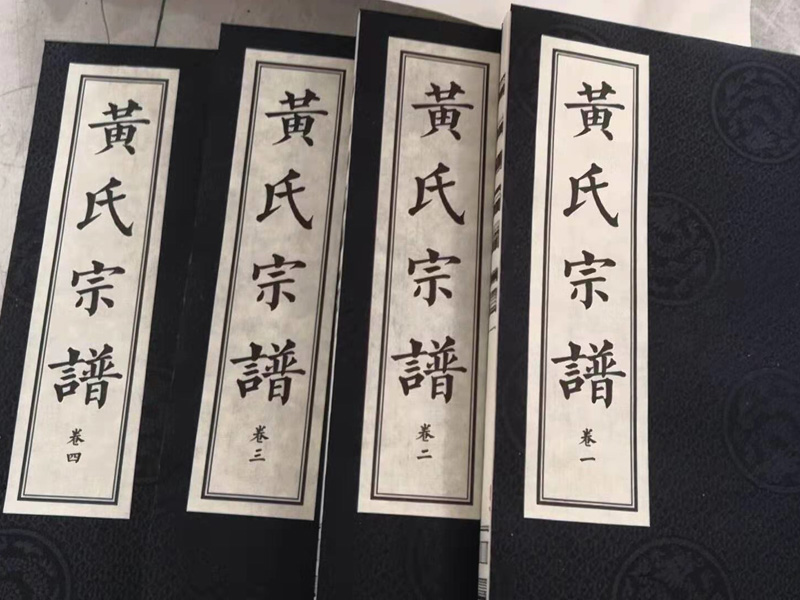 黃氏宗譜
卷一
黃氏宗譜
卷二
黃氏宗譜
卷三
黃氏宗譜
卷四